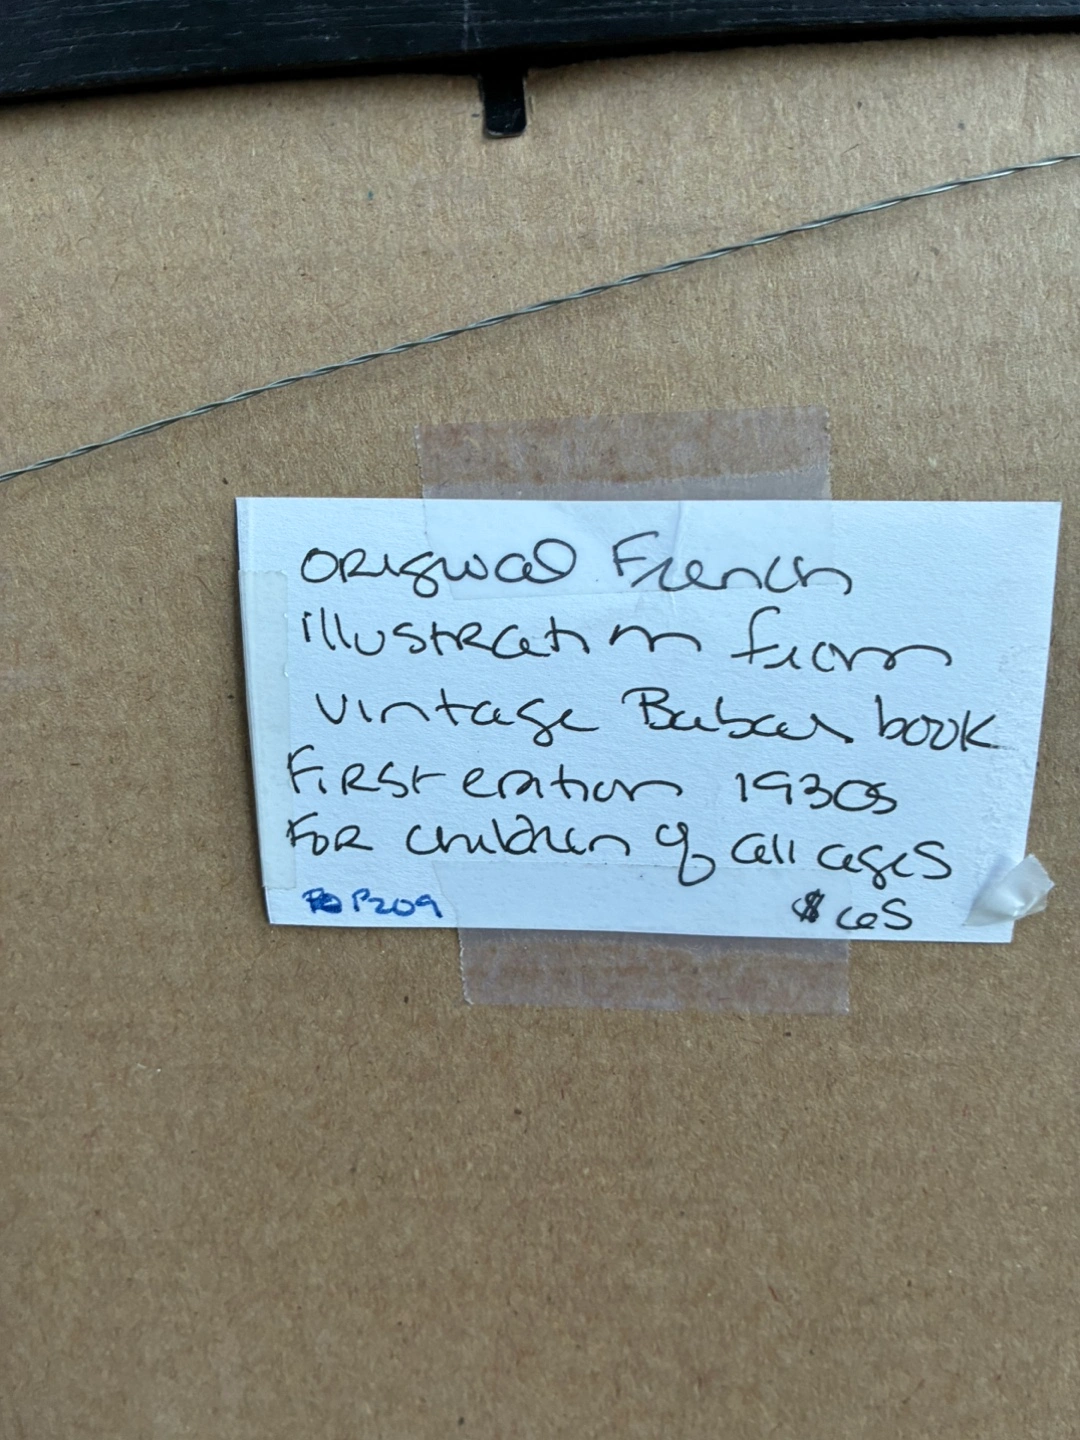 ORIGINAL French
illustration from
vintage Babar book
First edition 1930s
FOR children of all ages
P209 $65